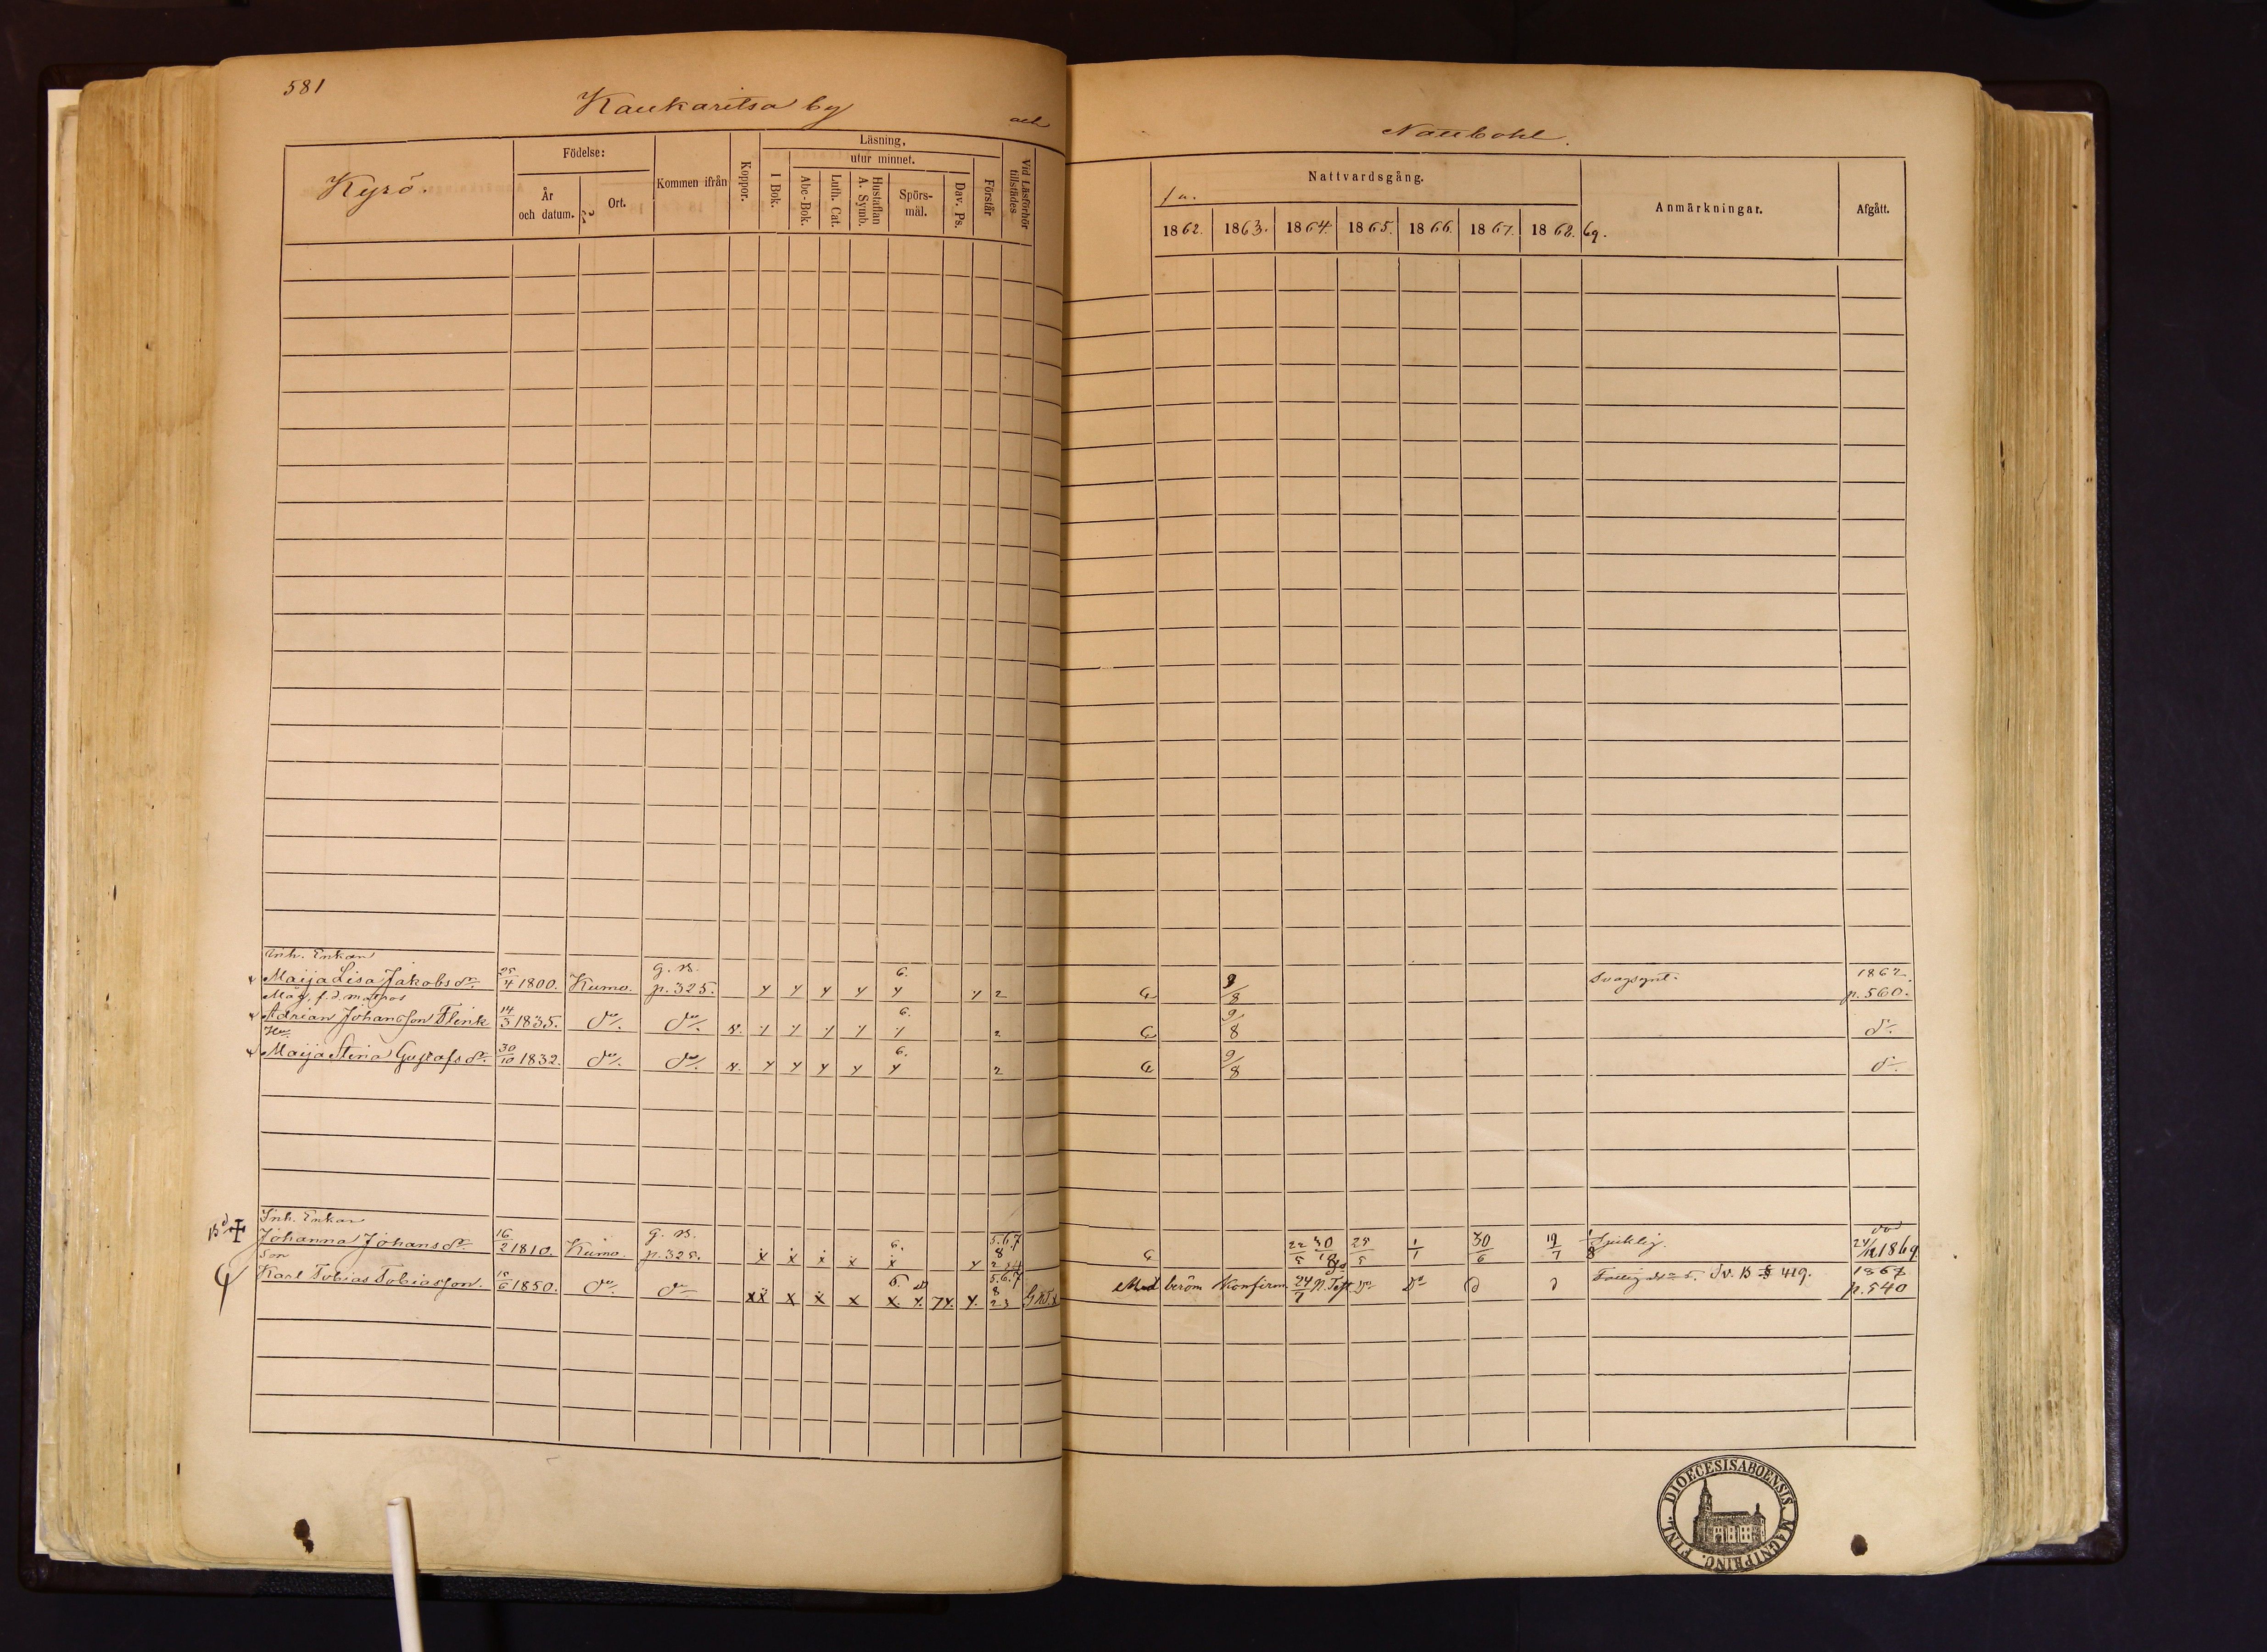 581
Kaukaritsa by
och
Naubohl.
Kyrö.
Födelse:
År
och datum.
Ort.
Kommen ifrån
Koppor.
Läsning,
utur minnet.
I Bok.
Abc-Bok.
Luth. Cat.
Hustaflan
A. Symb.
Spörs-
mål.
Dav. Ps.
Förstår
Vid Läsförhör
tillstädes
Nattvardsgång.
1862. 1863. 1864. 1865. 1866. 1867. 1868. 69.
Anmärkningar.
Afgått.
Inh. Enkan
Maija Lisa Jakobs dr. 25/4 1800. Kumo. g. B. p. 325. y y y y 6. y y 2 G 9/8 Svagsynt. 1862. p. 560.
Måg, f.d. matros
Adrian Johansson Flink 14/3 1835. do. do. v. y y y y 6. y 2 G 9/8 do.
Hu
Maija Stina Gustafs dr. 30/10 1832. do. do. v. y y y y 6. y 2 G 9/8 do.
Inh. Enkan
Johanna Johans dr. 16/2 1810. Kumo. g. B. p. 325. x x x x 6. x y 5.6.7 8 2 3 4 G 22/5 30/10 25/5 1/1 30/6 19/7 1/8 Sjuklig. död 24/12 1869
Son
Karl Tobias Tobiasson. 15/6 1850. do do xx x x x 6. x. y. 7 y. y. 5.6.7 8 2 3 Med beröm Konfirm. 24/7 N. Test. Do Do 1867 p. 540
DIOECESIS ABOENSIS MAGNI PRINC. FINL.